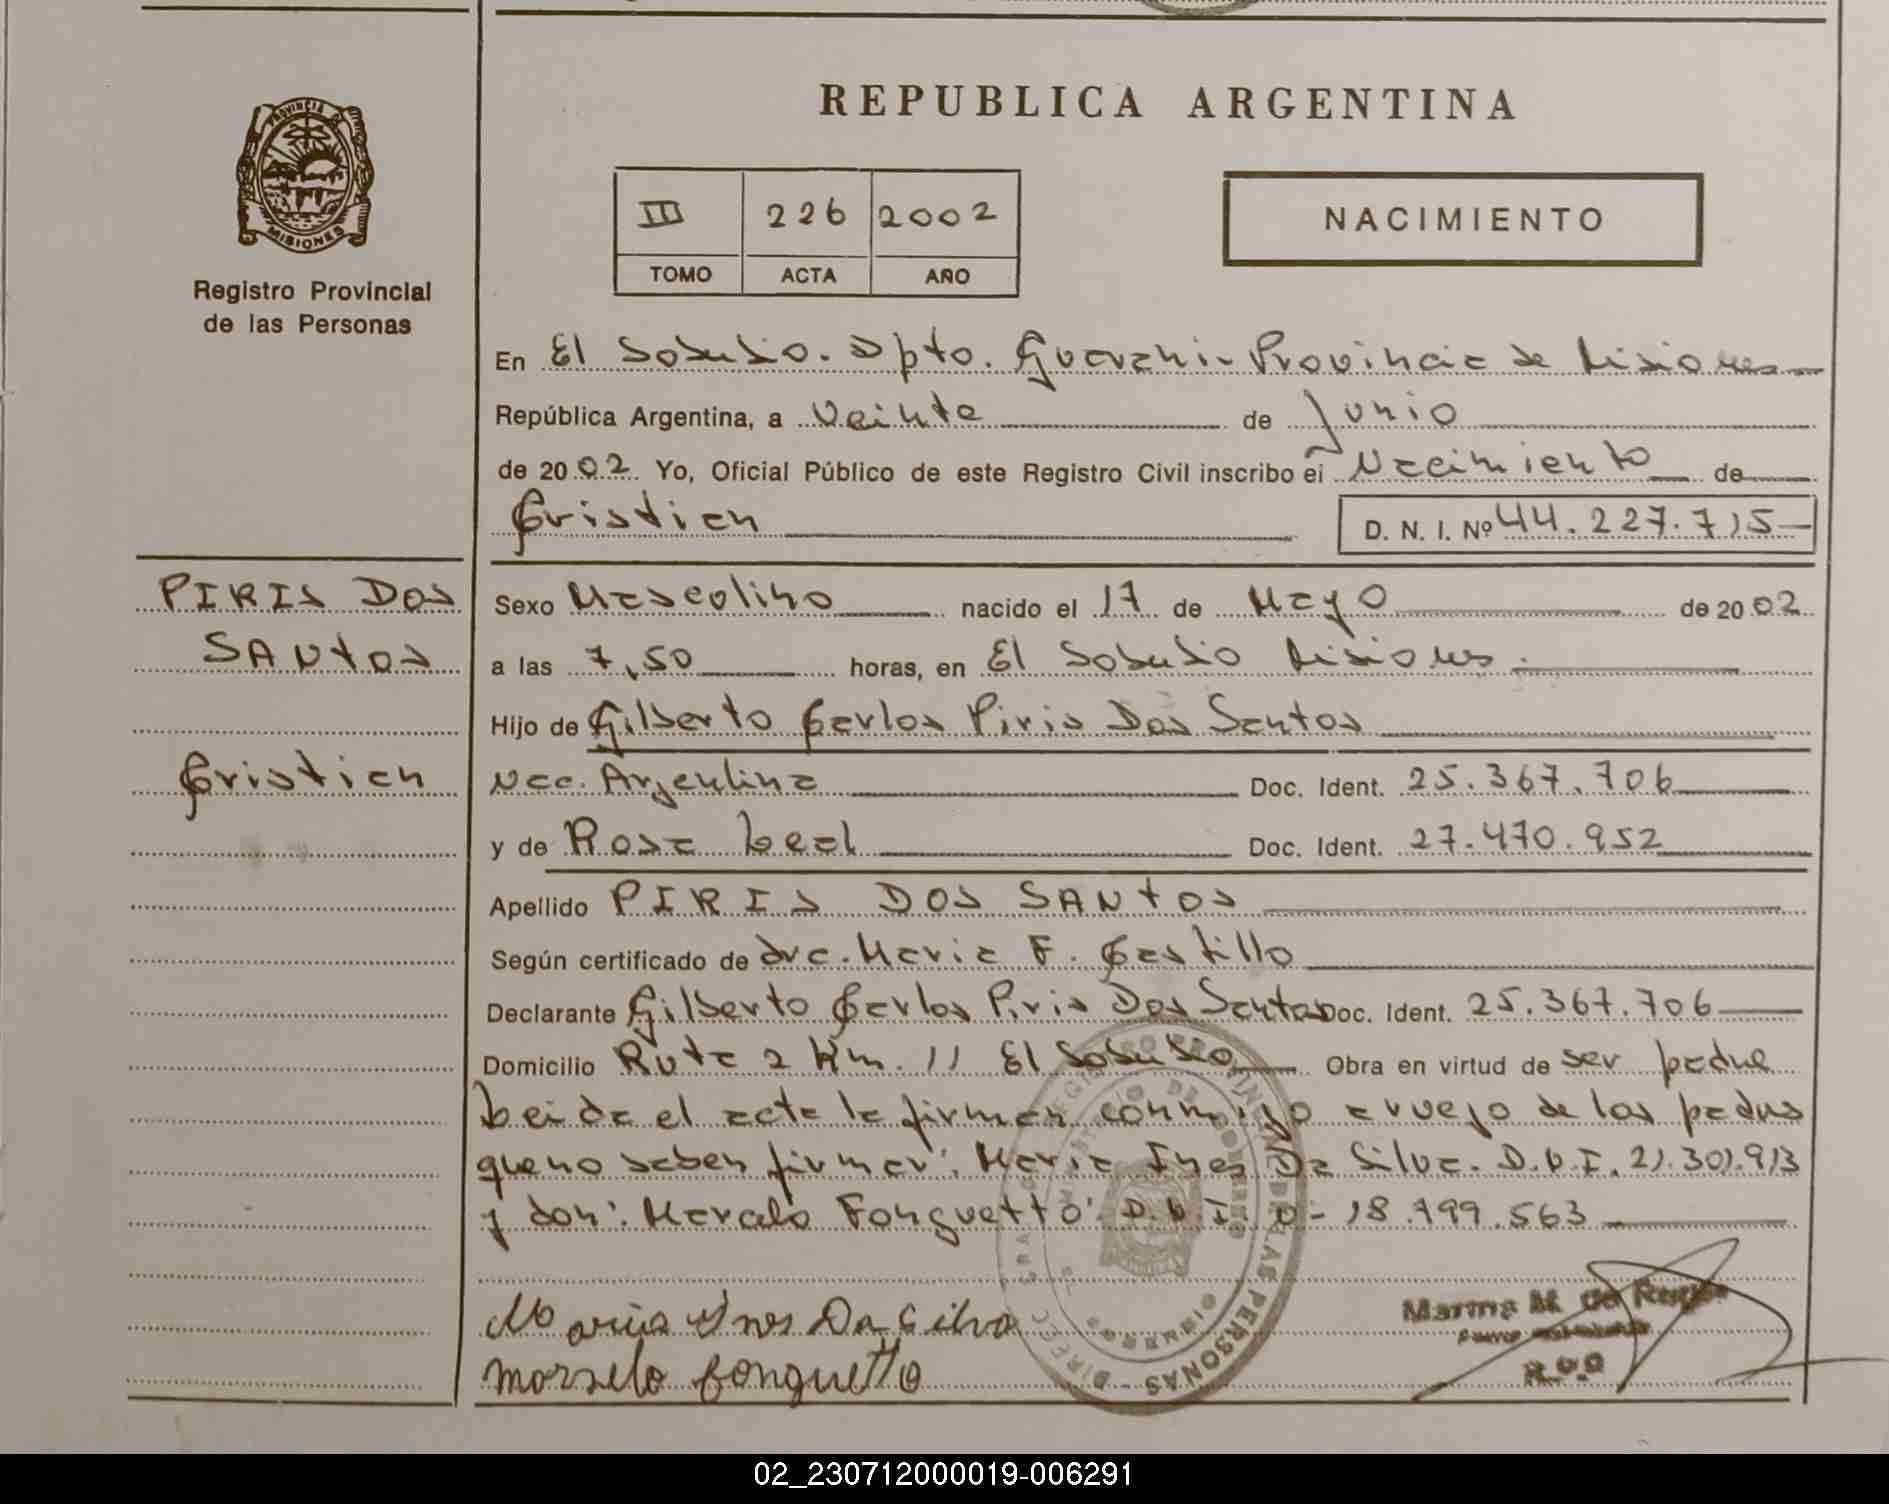 REPUBLICA ARGENTINA
PROVINCIA DE
MISIONES
Registro Provincial
de las Personas
III 226 2002
TOMO ACTA AÑO
NACIMIENTO
En El Soberbio. Dpto. Guarani - Provincia de Misiones
República Argentina, a Veinte de Junio
de 2002 Yo, Oficial Público de este Registro Civil inscribo el Nacimiento de
Cristian D. N. I. Nº 44.227.715
PIRIS DOS
SANtOS
Cristian
Sexo Masculino nacido el 17 de Mayo de 2002
a las 7,50 horas, en El Soberbio Misiones.
Hijo de Gilberto Carlos Piris Dos Santos
Nac. Argentina Doc. Ident. 25.367.706
y de Rosa Leal Doc. Ident. 27.470.952
Apellido PIRIS DOS SANtOS
Según certificado de dra. Maria F. Castillo
Declarante Gilberto Carlos Piris Dos Santos Doc. Ident. 25.367.706
Domicilio Ruta 2 Km. 11 El Soberbio Obra en virtud de ser padre
Leida el acta la firman conmigo a ruego de los padres
que no saben firmar: Maria Ines Da Silva. D.N.I. 21.301.913
y don: Marcelo Fonguetto: D.N.I. 18.799.563
Maria Ines Da Silva
Marcelo Fonguetto
Marina M. de
02_230712000019-006291